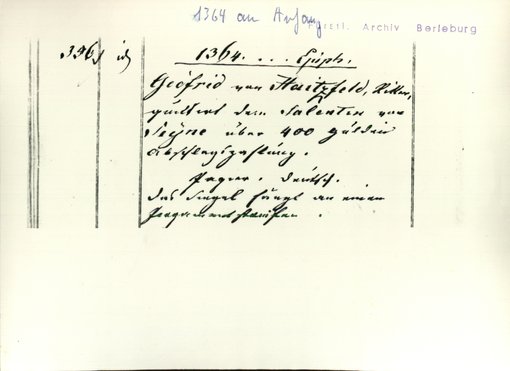 1364 an Anfang
Fürstl. Archiv Berleburg
336
1364. . . . Epiph.
Godfrid von Hatzfeld, Ritter,
quittirt dem Salentin von
Seyne über 400 gulden
abschlagszahlung.
Papier. Deutsch.
Das Siegel hängt an einem
Pergamentstreifen.